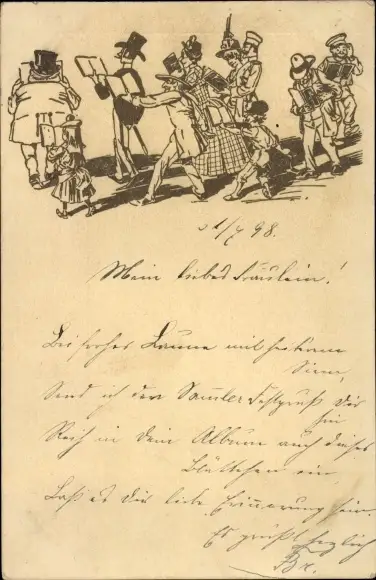 1/7 98.
Mein liebes Fräulein!
Bei froher Laune mit heiterm
Sinn,
Send ich den Sammler Festgruß Dir
hin
Reih in Dein Album auch dieses
Blättchen ein,
Laß es Dir liebe Erinnerung sein.
Es grüßt herzlich
Br.